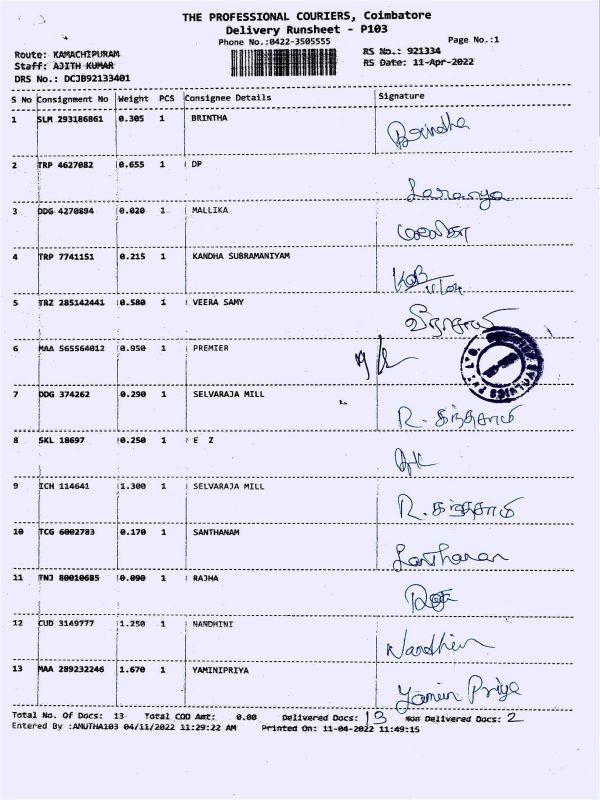 THE PROFESSIONAL COURIERS, Coimbatore
Delivery Runsheet - P103
Phone No.:0422-3505555 Page No.:1
Route: KAMACHIPURAM RS No.: 921334
Staff: AJITH KUMAR RS Date: 11-Apr-2022
DRS No.: DCJB92133401
S No Consignment No Weight PCS Consignee Details Signature
1 SLM 293186861 0.305 1 BRINTHA Brindha
2 TRP 4627082 0.655 1 DP Saranya
3 DDG 4270894 0.020 1 MALLIKA மல்லிகா
4 TRP 7741151 0.215 1 KANDHA SUBRAMANIYAM
5 TRZ 285142441 0.580 1 VEERA SAMY வீராசாமி
6 MAA 565564012 0.950 1 PREMIER
7 DDG 374262 0.290 1 SELVARAJA MILL R. கந்தசாமி
8 SKL 18697 0.250 1 E Z
9 ICH 114641 1.300 1 SELVARAJA MILL R. கந்தசாமி
10 TCG 6002783 0.170 1 SANTHANAM Santhanam
11 TNJ 80010685 0.090 1 RAJHA
12 CUD 3149777 1.250 1 NANDHINI Nandhini
13 MAA 289232246 1.670 1 YAMINIPRIYA Yamini Priya
Total No. Of Docs: 13 Total COD Amt: 0.00 Delivered Docs: 13 Non Delivered Docs: 2
Entered By :AMUTHA103 04/11/2022 11:29:22 AM Printed On: 11-04-2022 11:49:15